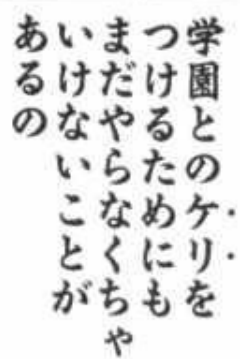 学園とのケリを
つけるためにも
まだやらなくちゃ
いけないことが
あるの